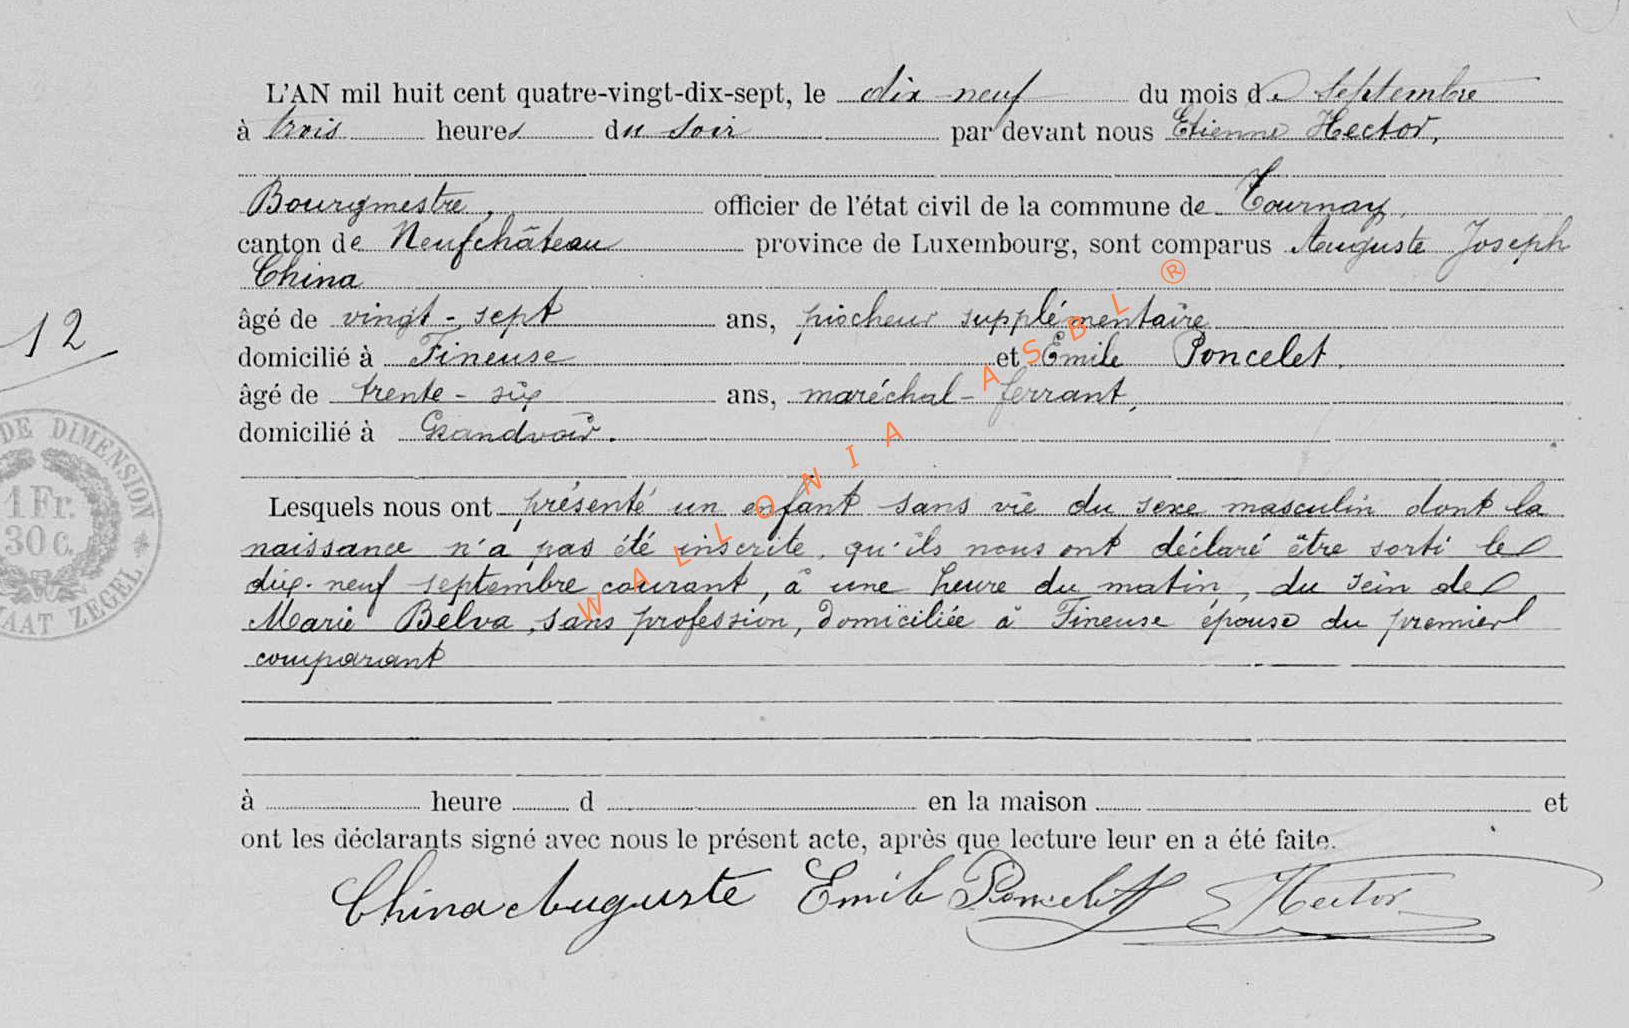 L'AN mil huit cent quatre-vingt-dix-sept, le dix-neuf du mois de septembre
à trois heures du soir par devant nous Etienne Hector,
Bourgmestre, officier de l'état civil de la commune de Tournay,
canton de Neufchâteau province de Luxembourg, sont comparus Auguste Joseph
China
âgé de vingt-sept ans, piocheur supplémentaire
domicilié à Fineuse et Emile Poncelet,
âgé de trente-six ans, maréchal-ferrant,
domicilié à Grandvoir.
12
DE DIMENSION
1 Fr.
30 C.
MAAT ZEGEL
Lesquels nous ont présenté un enfant sans vie du sexe masculin dont la
naissance n'a pas été inscrite, qu'ils nous ont déclaré être sorti le
dix-neuf septembre courant, à une heure du matin, du sein de
Marie Belva, sans profession, domiciliée à Fineuse épouse du premier
comparant
à heure d en la maison et
ont les déclarants signé avec nous le présent acte, après que lecture leur en a été faite.
China Auguste Emile Poncelet Hector
WALLONIA ASBL ®